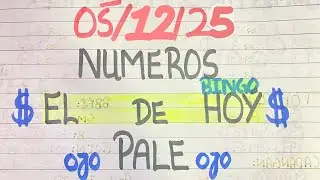 05/12/25
NUMEROS
BINGO
$ EL DE HOY $
ojo PALE ojo